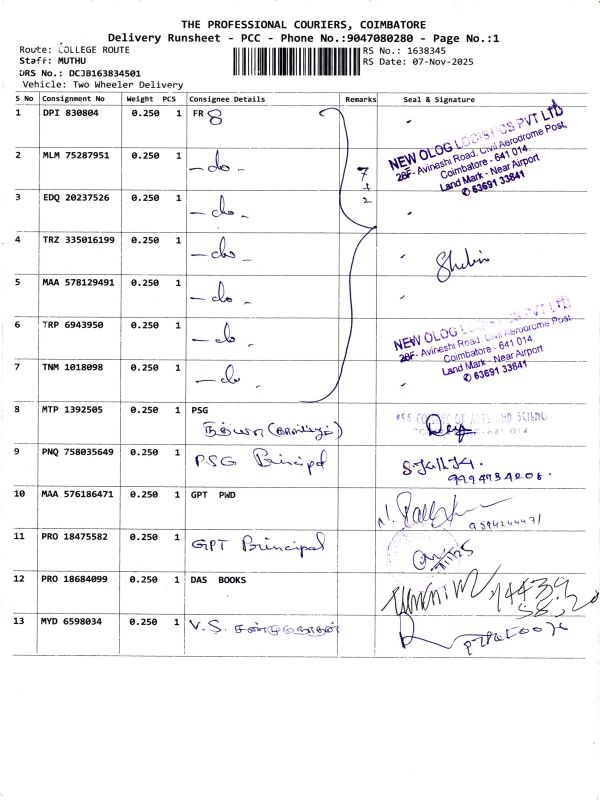 THE PROFESSIONAL COURIERS, COIMBATORE
Delivery Runsheet - PCC - Phone No.:9047080280 - Page No.:1
Route: COLLEGE ROUTE
Staff: MUTHU
DRS No.: DCJB163834501
Vehicle: Two Wheeler Delivery
RS No.: 1638345
RS Date: 07-Nov-2025
S No Consignment No Weight PCS Consignee Details Remarks Seal & Signature
1 DPI 830804 0.250 1 FR 8
2 MLM 75287951 0.250 1 - do -
3 EDQ 20237526 0.250 1 - do -
4 TRZ 335016199 0.250 1 - do -
5 MAA 578129491 0.250 1 - do -
6 TRP 6943950 0.250 1 - do -
7 TNM 1018098 0.250 1 - do -
7
+
2
NEW OLOG LOGISTICS PVT LTD
28F- Avineshi Road, Civil Aerodrome Post,
Coimbatore - 641 014.
Land Mark - Near Airport
✆ 63691 33841
Shebin
NEW OLOG LOGISTICS PVT LTD
28F- Avineshi Road, Civil Aerodrome Post,
Coimbatore - 641 014.
Land Mark - Near Airport
✆ 63691 33841
8 MTP 1392505 0.250 1 PSG
PSG COLLEGE OF ARTS AND SCIENCE
9 PNQ 758035649 0.250 1 PSG Principal
10 MAA 576186471 0.250 1 GPT PWD
11 PRO 18475582 0.250 1 GPT Principal
12 PRO 18684099 0.250 1 DAS BOOKS
13 MYD 6598034 0.250 1 V.S. சண்முகநாதன்